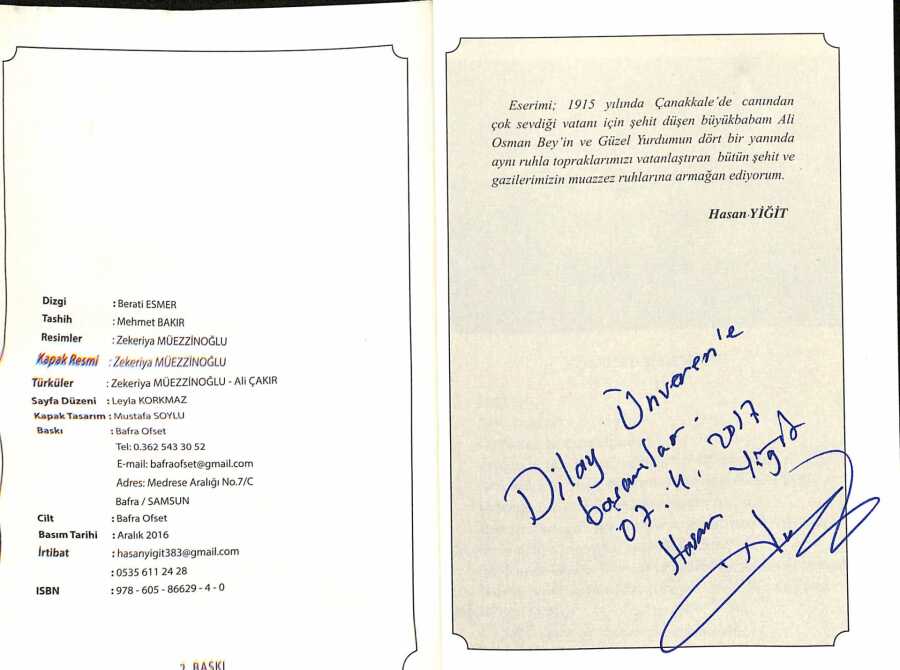 Dizgi : Berati ESMER
Tashih : Mehmet BAKIR
Resimler : Zekeriya MÜEZZİNOĞLU
Kapak Resmi : Zekeriya MÜEZZİNOĞLU
Türküler : Zekeriya MÜEZZİNOĞLU - Ali ÇAKIR
Sayfa Düzeni : Leyla KORKMAZ
Kapak Tasarım : Mustafa SOYLU
Baskı : Bafra Ofset
Tel: 0.362 543 30 52
E-mail: bafraofset@gmail.com
Adres: Medrese Aralığı No.7/C
Bafra / SAMSUN
Cilt : Bafra Ofset
Basım Tarihi : Aralık 2016
İrtibat : hasanyigit383@gmail.com
: 0535 611 24 28
ISBN : 978 - 605 - 86629 - 4 - 0
2. BASKI
Eserimi; 1915 yılında Çanakkale'de canından
çok sevdiği vatanı için şehit düşen büyükbabam Ali
Osman Bey'in ve Güzel Yurdumun dört bir yanında
aynı ruhla topraklarımızı vatanlaştıran bütün şehit ve
gazilerimizin muazzez ruhlarına armağan ediyorum.
Hasan YİĞİT
Dilay Ünveren'e
başarılar.
07. 2017
Hasan Yiğit